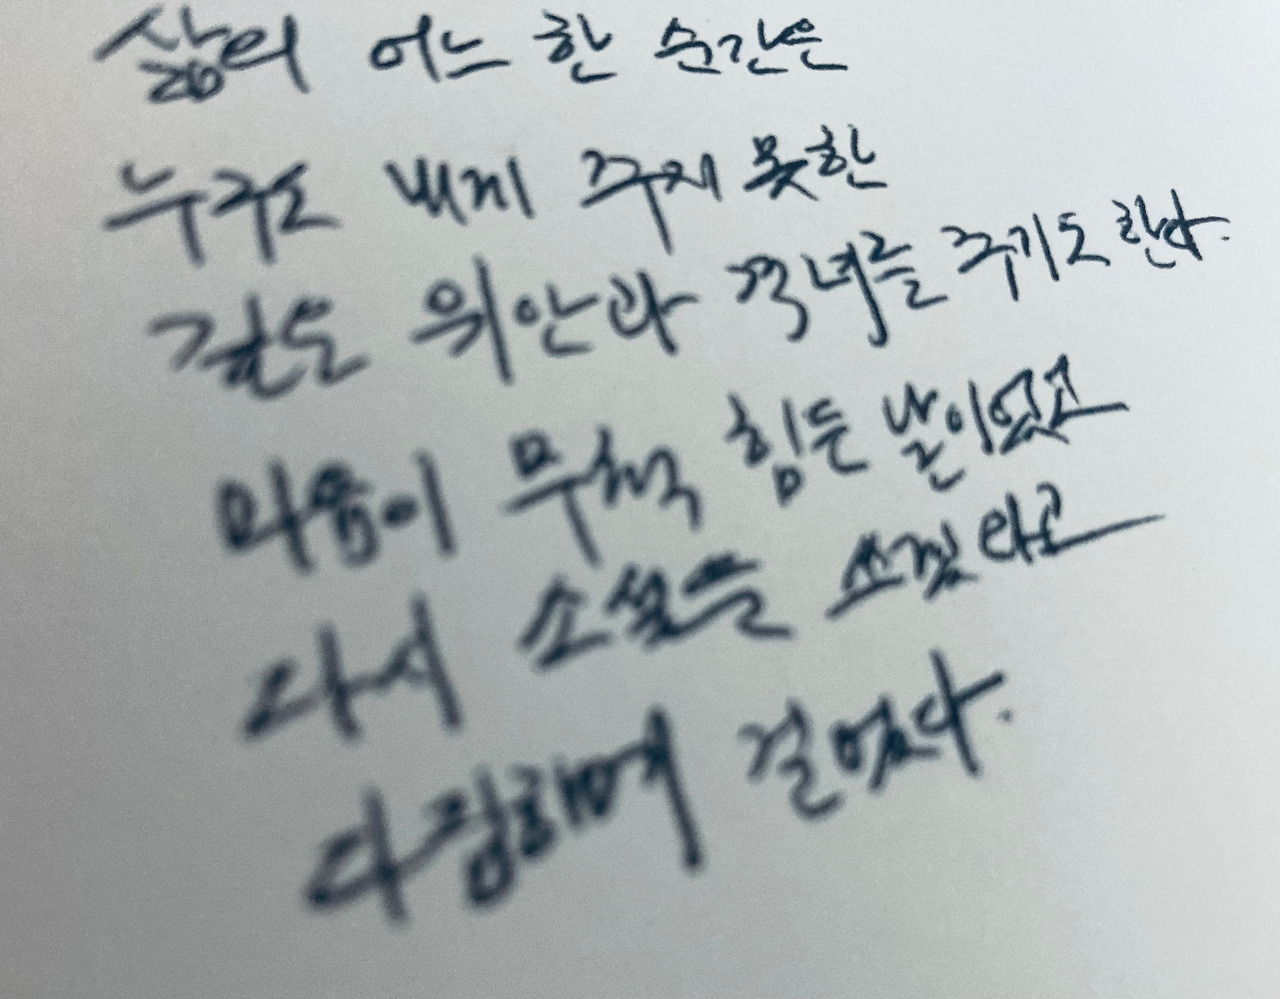 삶의 어느 한 순간은
누구도 내게 주지 못한
깊은 위안과 격려를 주기도 한다.
마음이 무척 힘든 날이었고
다시 소설을 쓰겠다고
다짐하며 걸었다.